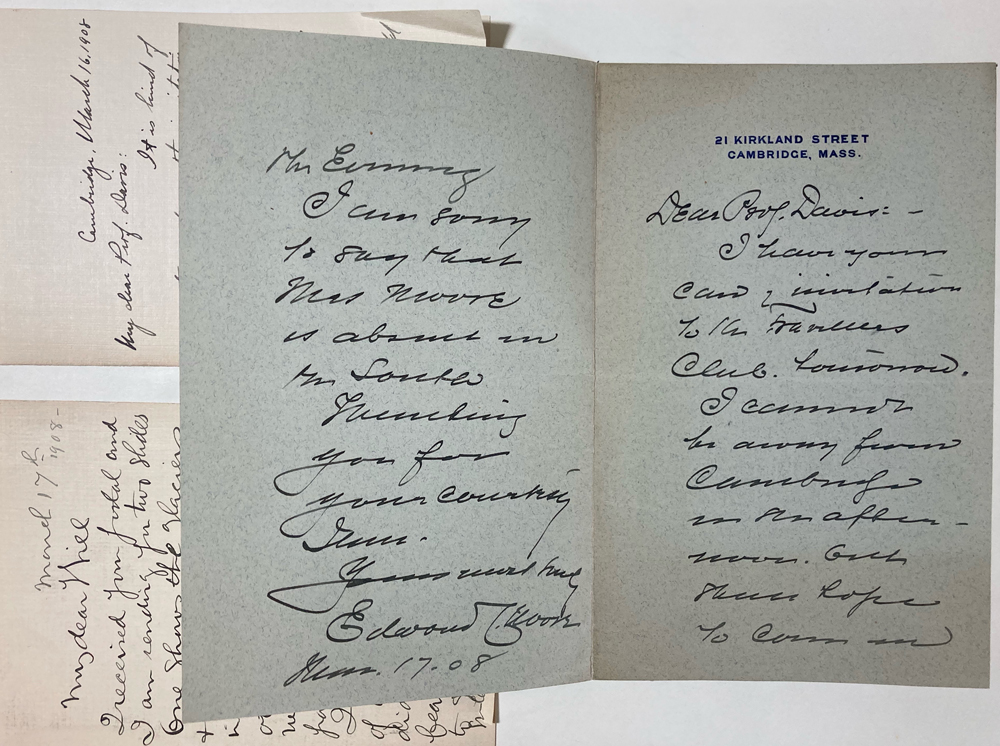 21 KIRKLAND STREET
CAMBRIDGE, MASS.
Dear Prof. Davis:-
I have your
card & invitation
to the Travellers
Club. tomorrow.
I cannot
be away from
Cambridge
in the after-
noon. But
shall hope
to come in
the Evening
I am sorry
to say that
Mrs Moore
is absent in
the South
Thanking
you for
your courtesy
I am.
Yours most truly
Edward C. Moore
Mar. 17-08
Cambridge, March 16, 1908
My dear Prof. Davis:
It is kind of
March 17th
1908-
My dear Will
I received your postal and
I am sending for two slides
One shows the glacier